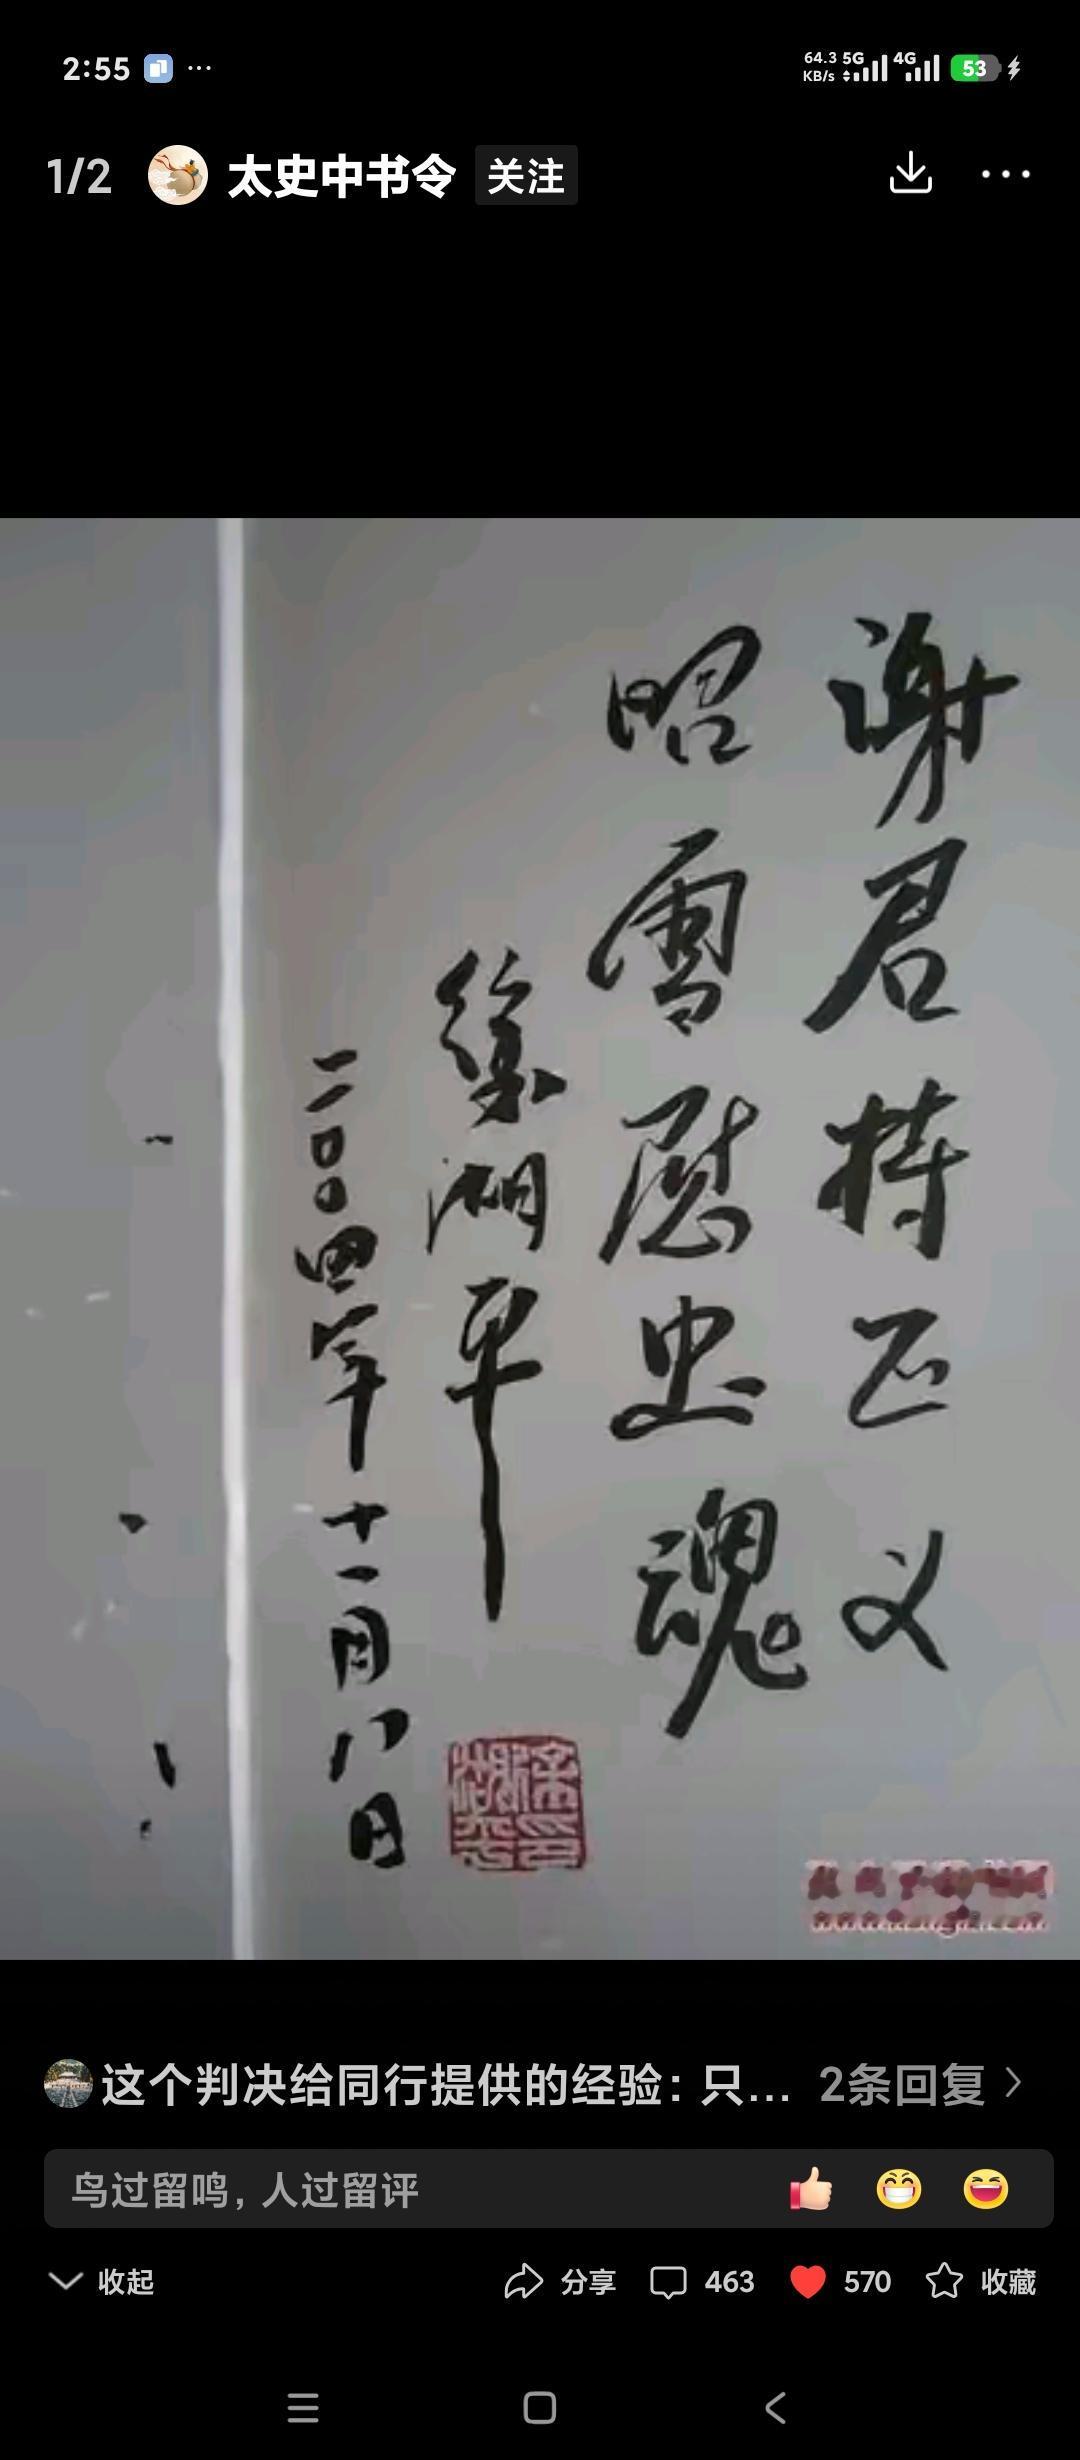 2:55 ...
64.3 KB/s 5G 4G 53
1/2 太史中书令 关注
谢君持正义
昭雪慰忠魂
徐湘平
二〇〇四年十一月八日
这个判决给同行提供的经验：只... 2条回复
鸟过留鸣，人过留评
收起 分享 463 570 收藏